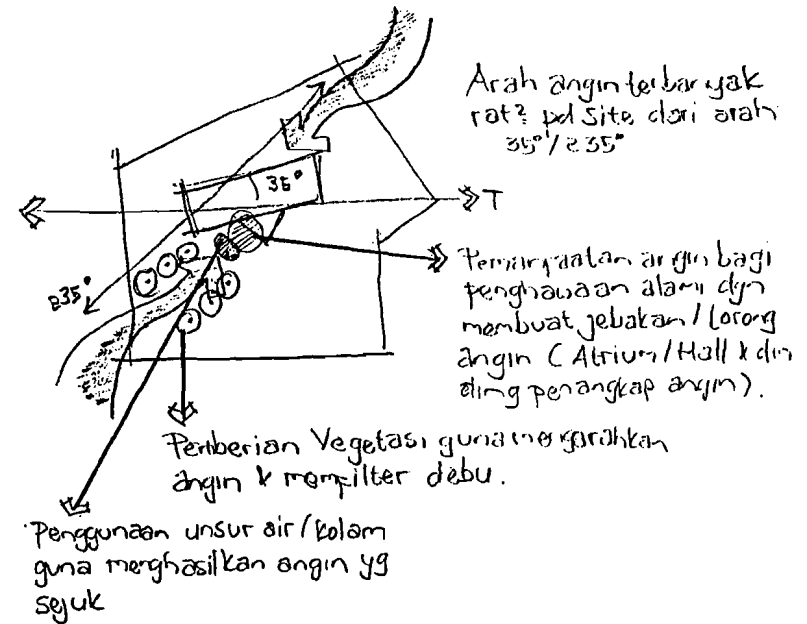 Arah angin terbanyak
rat² pd Site dari arah
35°/235°
35°
T
235°
Pemanfaatan angin bagi
penghawaan alami dgn
membuat jebakan/lorong
angin (Atrium/Hall & din
ding penangkap angin).
Pemberian Vegetasi guna mengarahkan
angin & memfilter debu.
Penggunaan unsur air/kolam
guna menghasilkan angin yg
sejuk